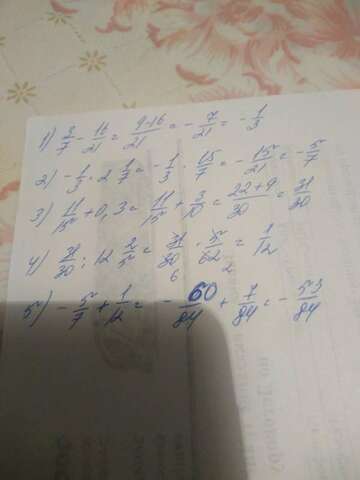 1) 3/7 - 16/21 = 9-16/21 = - 7/21 = - 1/3
2) - 1/3 · 2 1/7 = - 1/3 · 15/7 = - 15/21 = - 5/7
3) 11/15 + 0,3 = 11/15 + 3/10 = 22+9/30 = 31/30
4) 31/30 : 12 2/5 = 31/30 6 · 5/62 2 = 1/12
5) - 5/7 + 1/12 = - 60/84 + 7/84 = - 53/84